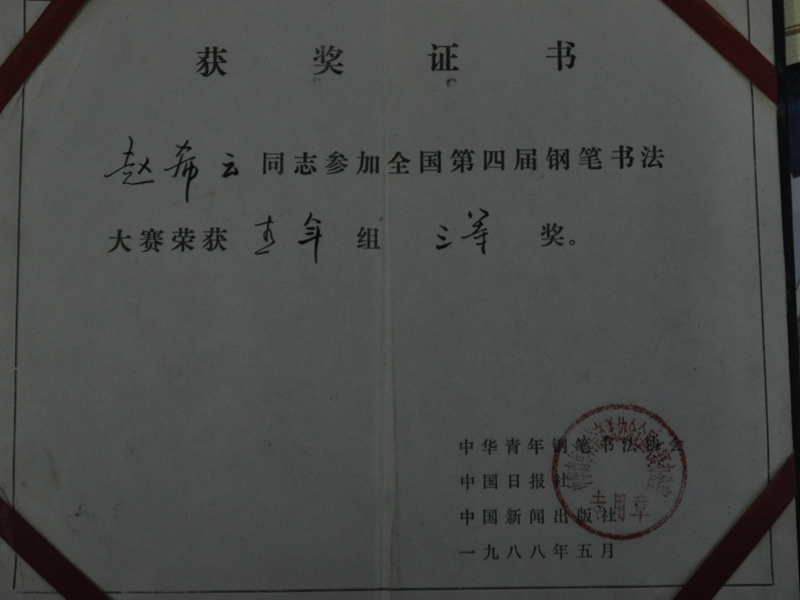 获奖证书
赵希云同志参加全国第四届钢笔书法
大赛荣获青年组三等奖。
中华青年钢笔书法协会
中国日报社
中国新闻出版社
一九八八年五月
专用章